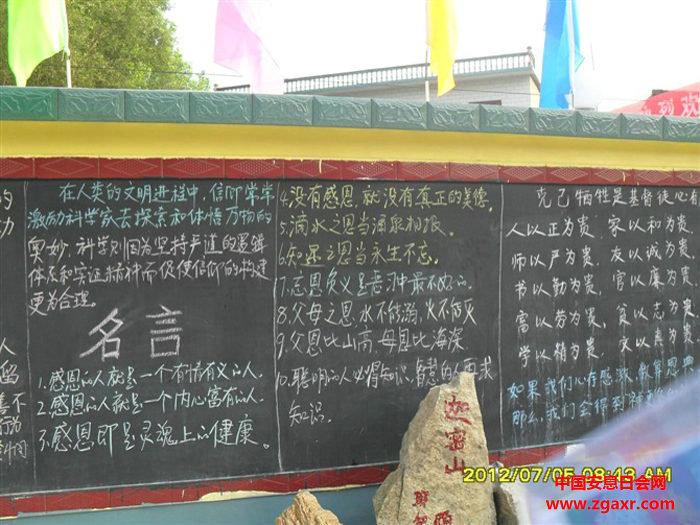 在人类的文明进程中,信仰常常
激励科学家去探索和体悟万物的
奥妙,科学则因为坚持严谨的逻辑
体系和实证精神而促使信仰的构建
更为合理。
名言
1.感恩的人就是一个有情有义的人。
2.感恩的人就是一个内心富有的人。
3.感恩即是灵魂上的健康。
4.没有感恩,就没有真正的美德。
5.滴水之恩当涌泉相报。
6.知果之恩当永生不忘。
7.忘恩负义是恶习中最不好的。
8.父母之恩,水不能溺,火不能灭
9.父恩比山高,母恩比海深
10.聪明的人必得知识,智慧的人要求
知识.
克己牺牲是基督徒心
人以正为贵, 家以和为贵
师以严为贵, 友以诚为贵
书以勤为贵, 官以廉为贵
富以劳为贵, 贫以志为贵
学以精为贵, 文以真为贵
如果我们心存感
那么,我们会得到
迦密山
2012/07/05 08:43 AM
中国安息日会网
www.zgaxr.com